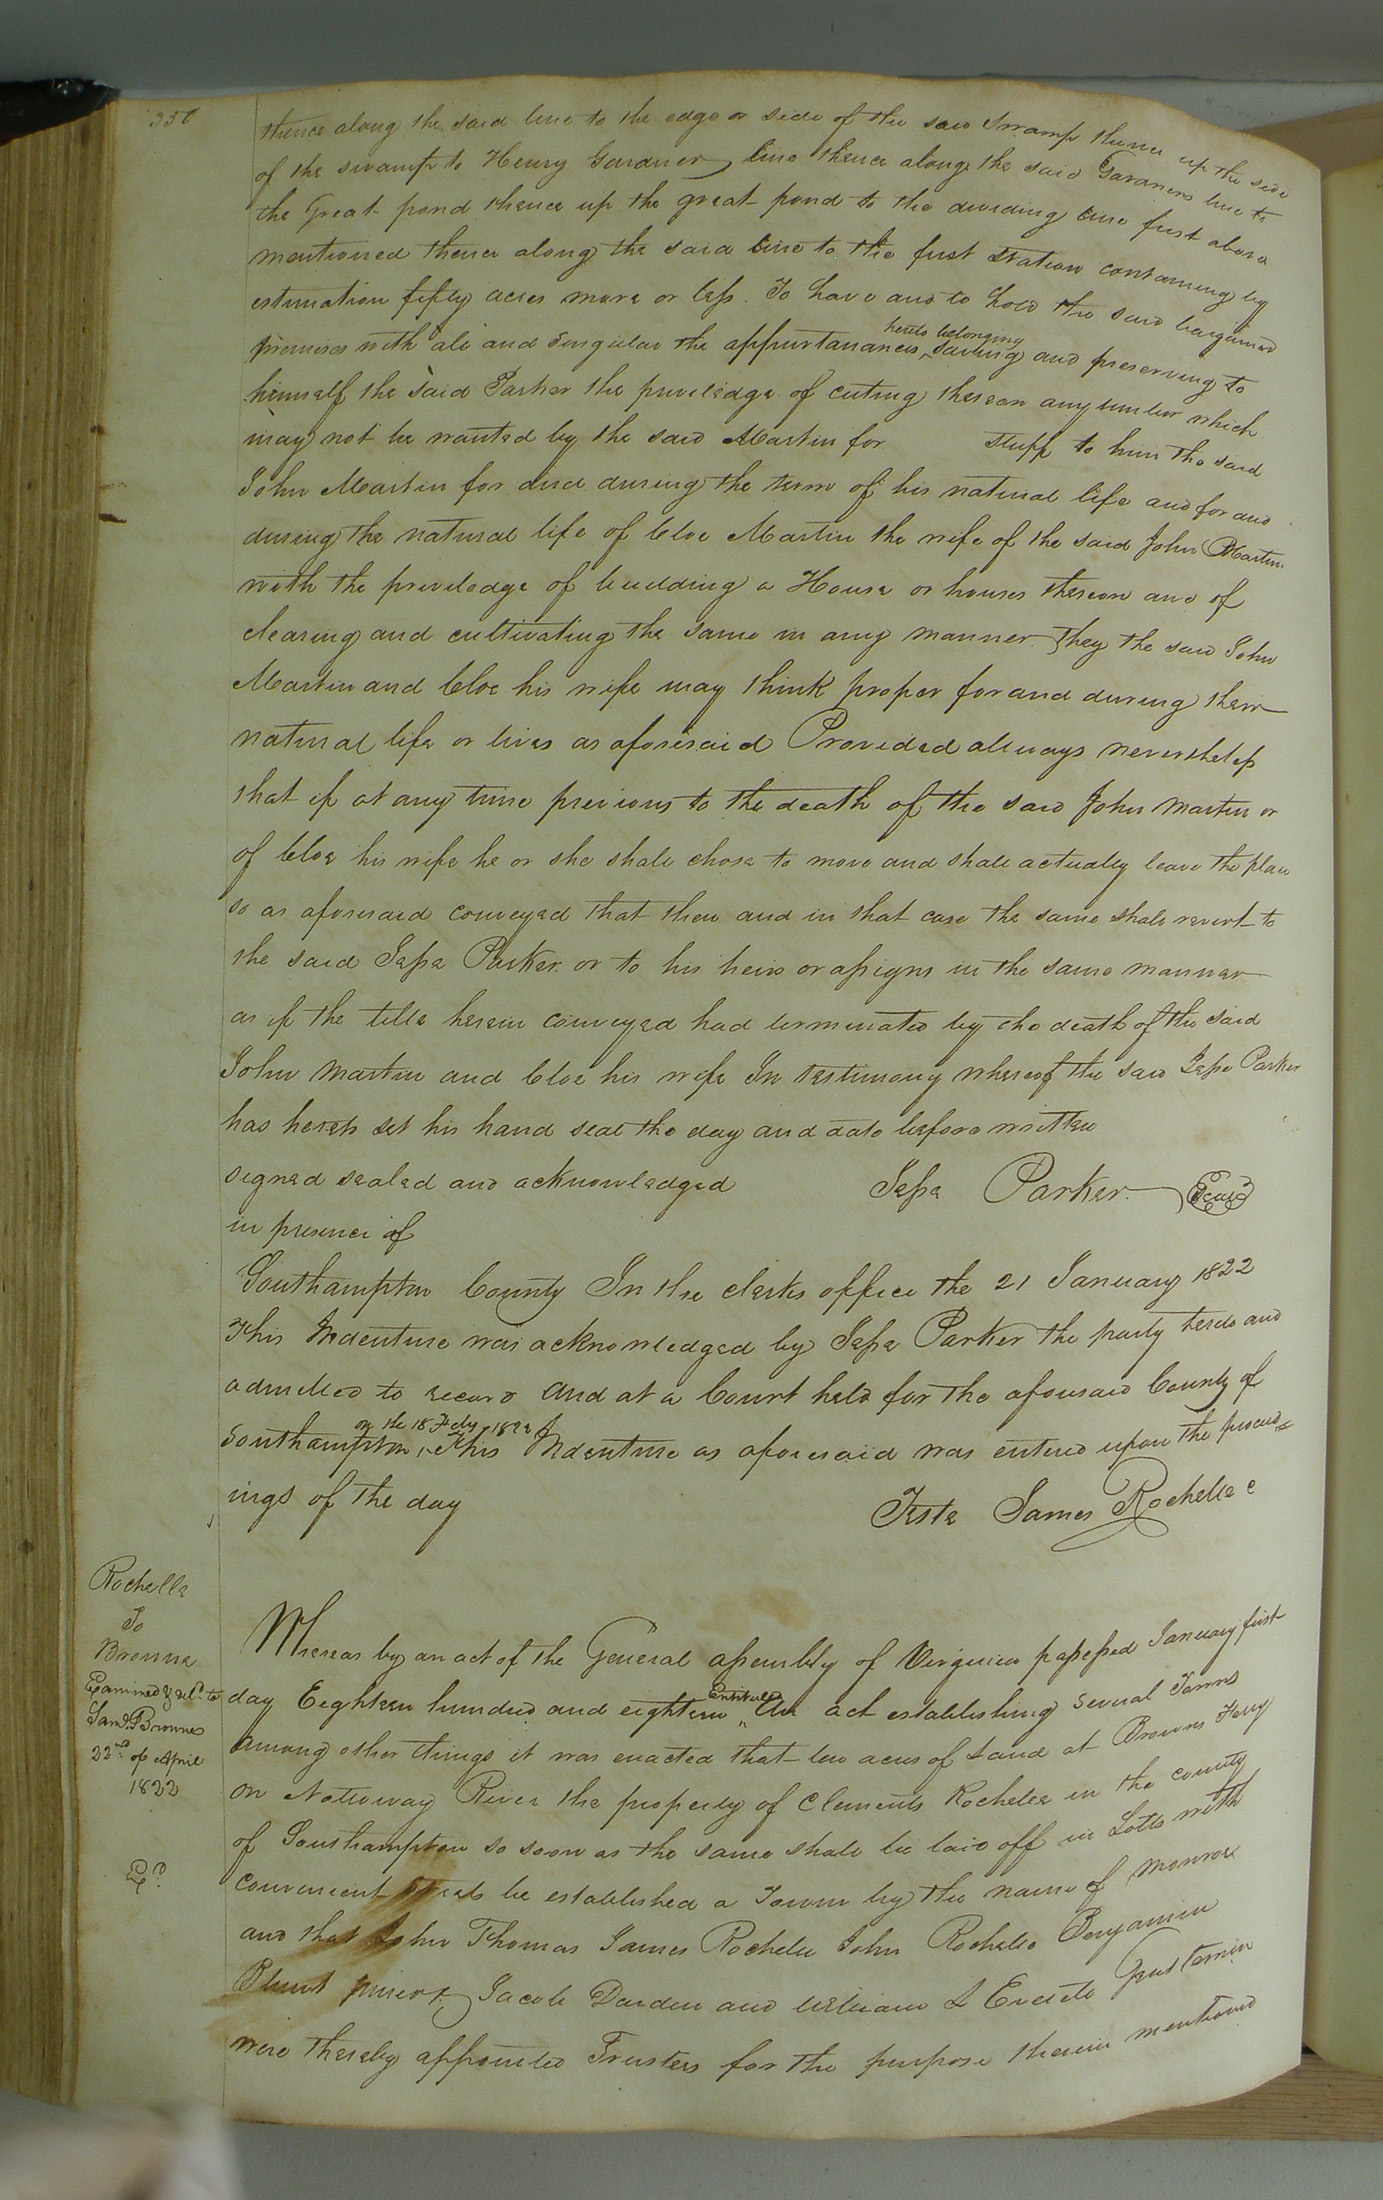 350
thence along the said line to the edge or side of the said Swamp thence up the side
of the swamp to Henry Gardner line thence along the said Gardners line to
the Great pond thence up the great pond to the dividing line first above
mentioned thence along the said line to the first Station containing by
estimation fifty acres more or less. To have and to hold the said bargained
premises with all and singular the appurtanances hereto belonging saving and preserving to
himself the said Parker the priviledge of cuting thereon any timber which
may not be wanted by the said Martin for stuff to him the said
John Martin for and during the term of his natural life and for and
during the natural life of Cloe Martin the wife of the said John Martin
with the priviledge of building a House or houses thereon and of
clearing and cultivating the same in any manner they the said John
Martin and Cloe his wife may think proper for and during their
natural life or lives as aforesaid Provided always nevertheless
that if at any time previous to the death of the said John Martin or
of Cloe his wife he or she shall chose to move and shall actually leave the place
so as aforesaid conveyed that then and in that case the same shall revert to
the said Jesse Parker or to his heirs or assigns in the same manner
as if the title herein conveyed had terminated by the death of the said
John Martin and Cloe his wife In testimony whereof the said Jesse Parker
has hereto set his hand seal the day and date before written
signed sealed and acknowledged Jesse Parker Seal
in presence of
Southampton County In the clerks office the 21 January 1822
This Indenture was acknowledged by Jesse Parker the party hereto and
admitted to record and at a Court held for the aforesaid County of
Southampton on the 18 Feby 1822 This Indenture as aforesaid was entered upon the proceed
ings of the day
Teste James Rochelle c
Rochelle
To
Browne
Examined & deld. to
Saml. Browne
22nd of April
1822
Exd.
Whereas by an act of the General assembly of Virginia passed January first
day Eighteen hundred and eighteen Entitled "An act establishing several Towns
among other things it was enacted that ten acres of Land at Browns Ferry
on Nottoway River the property of Clements Rochelle in the county
of Southampton so soon as the same shall be laid off in Lotts with
convenient streets be established a Town by the name of Monroe
and that John Thomas James Rochelle John Rochelle Benjamin
Blunt Jacob Darden and William Gentlemin
were thereby appointed Trustees for the purpose therein mentioned